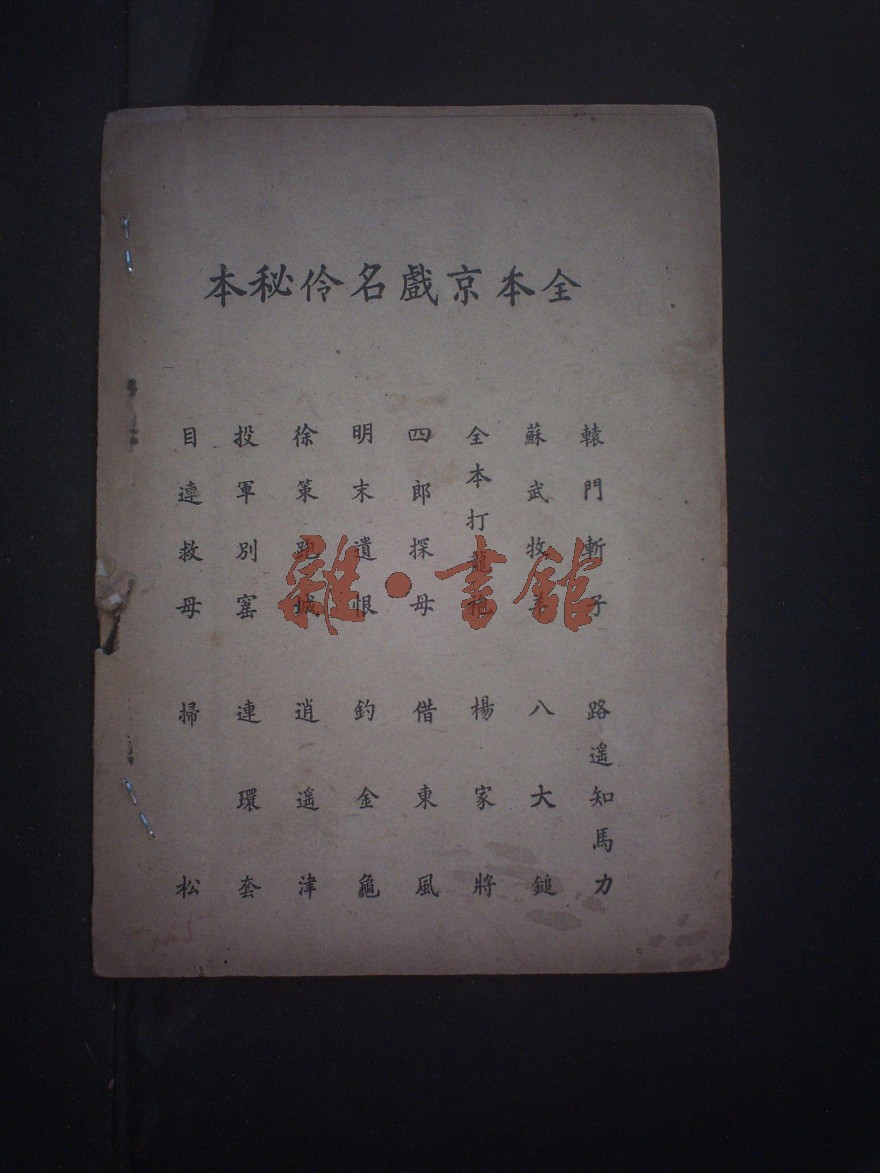 全本京戲名伶秘本
轅門斬子
蘇武牧羊
全本打龍袍
四郎探母
明末遺恨
徐策跑城
投軍別窰
目連救母
路遥知馬力
八大鎚
楊家將
借東風
釣金龜
逍遥津
連環套
掃松
雜·書舘